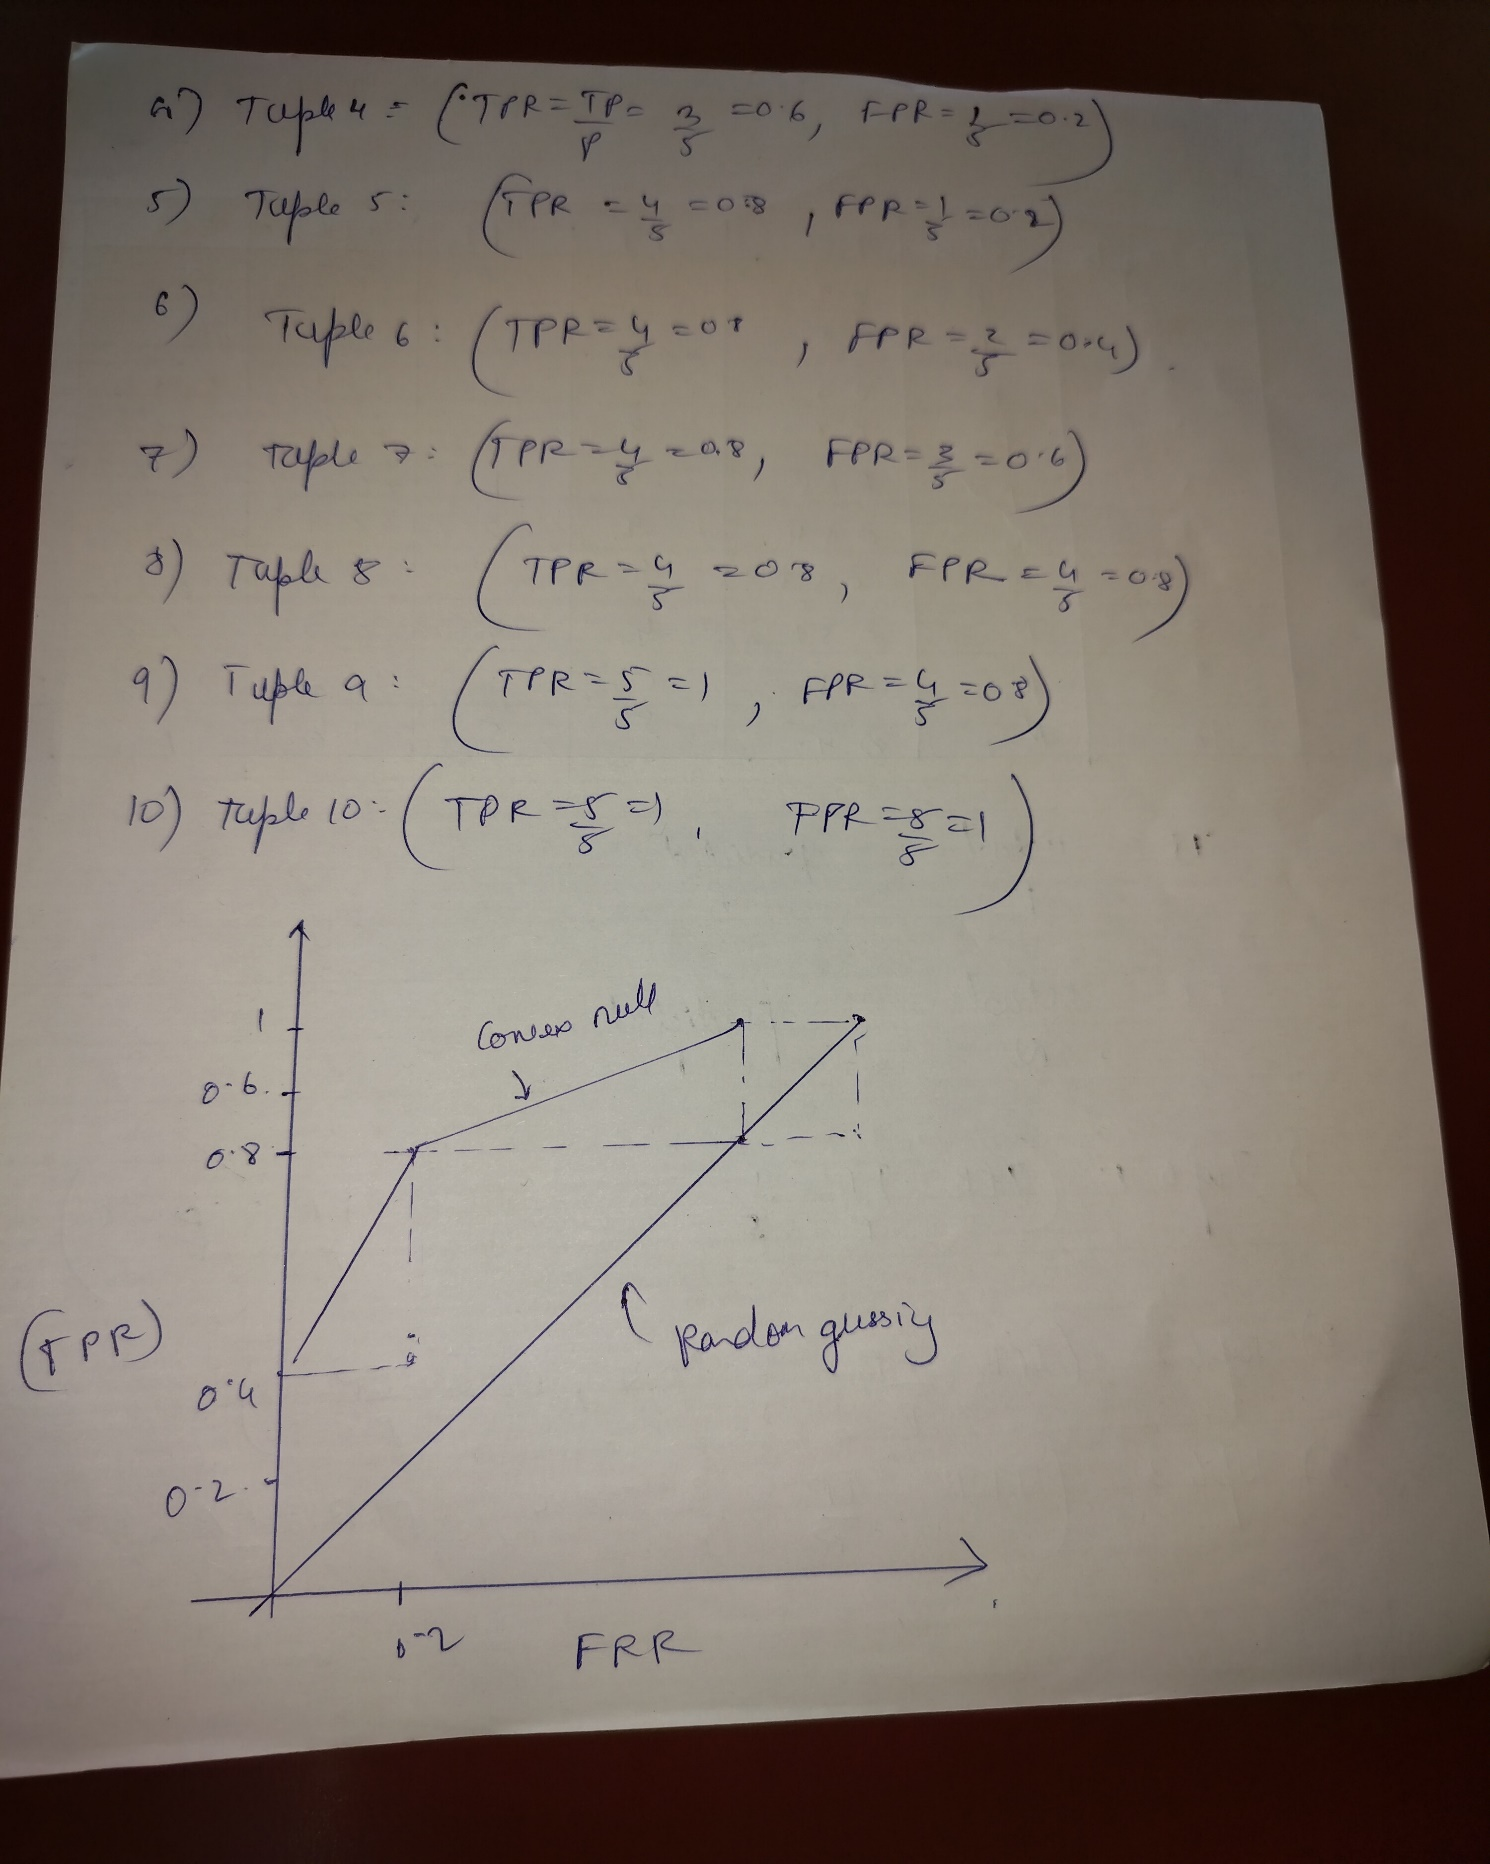 4) Tuple 4 = (TPR = TP/P = 3/5 = 0.6, FPR = 1/5 = 0.2)
5) Tuple 5: (TPR = 4/5 = 0.8, FPR = 1/5 = 0.2)
6) Tuple 6: (TPR = 4/5 = 0.8, FPR = 2/5 = 0.4)
7) Tuple 7: (TPR = 4/5 = 0.8, FPR = 3/5 = 0.6)
8) Tuple 8: (TPR = 4/5 = 0.8, FPR = 4/5 = 0.8)
9) Tuple 9: (TPR = 5/5 = 1, FPR = 4/5 = 0.8)
10) Tuple 10: (TPR = 5/5 = 1, FPR = 5/5 = 1)
Convex hull
1
0.6
0.8
(TPR)
Random gussing
0.4
0.2
0.2
FRR